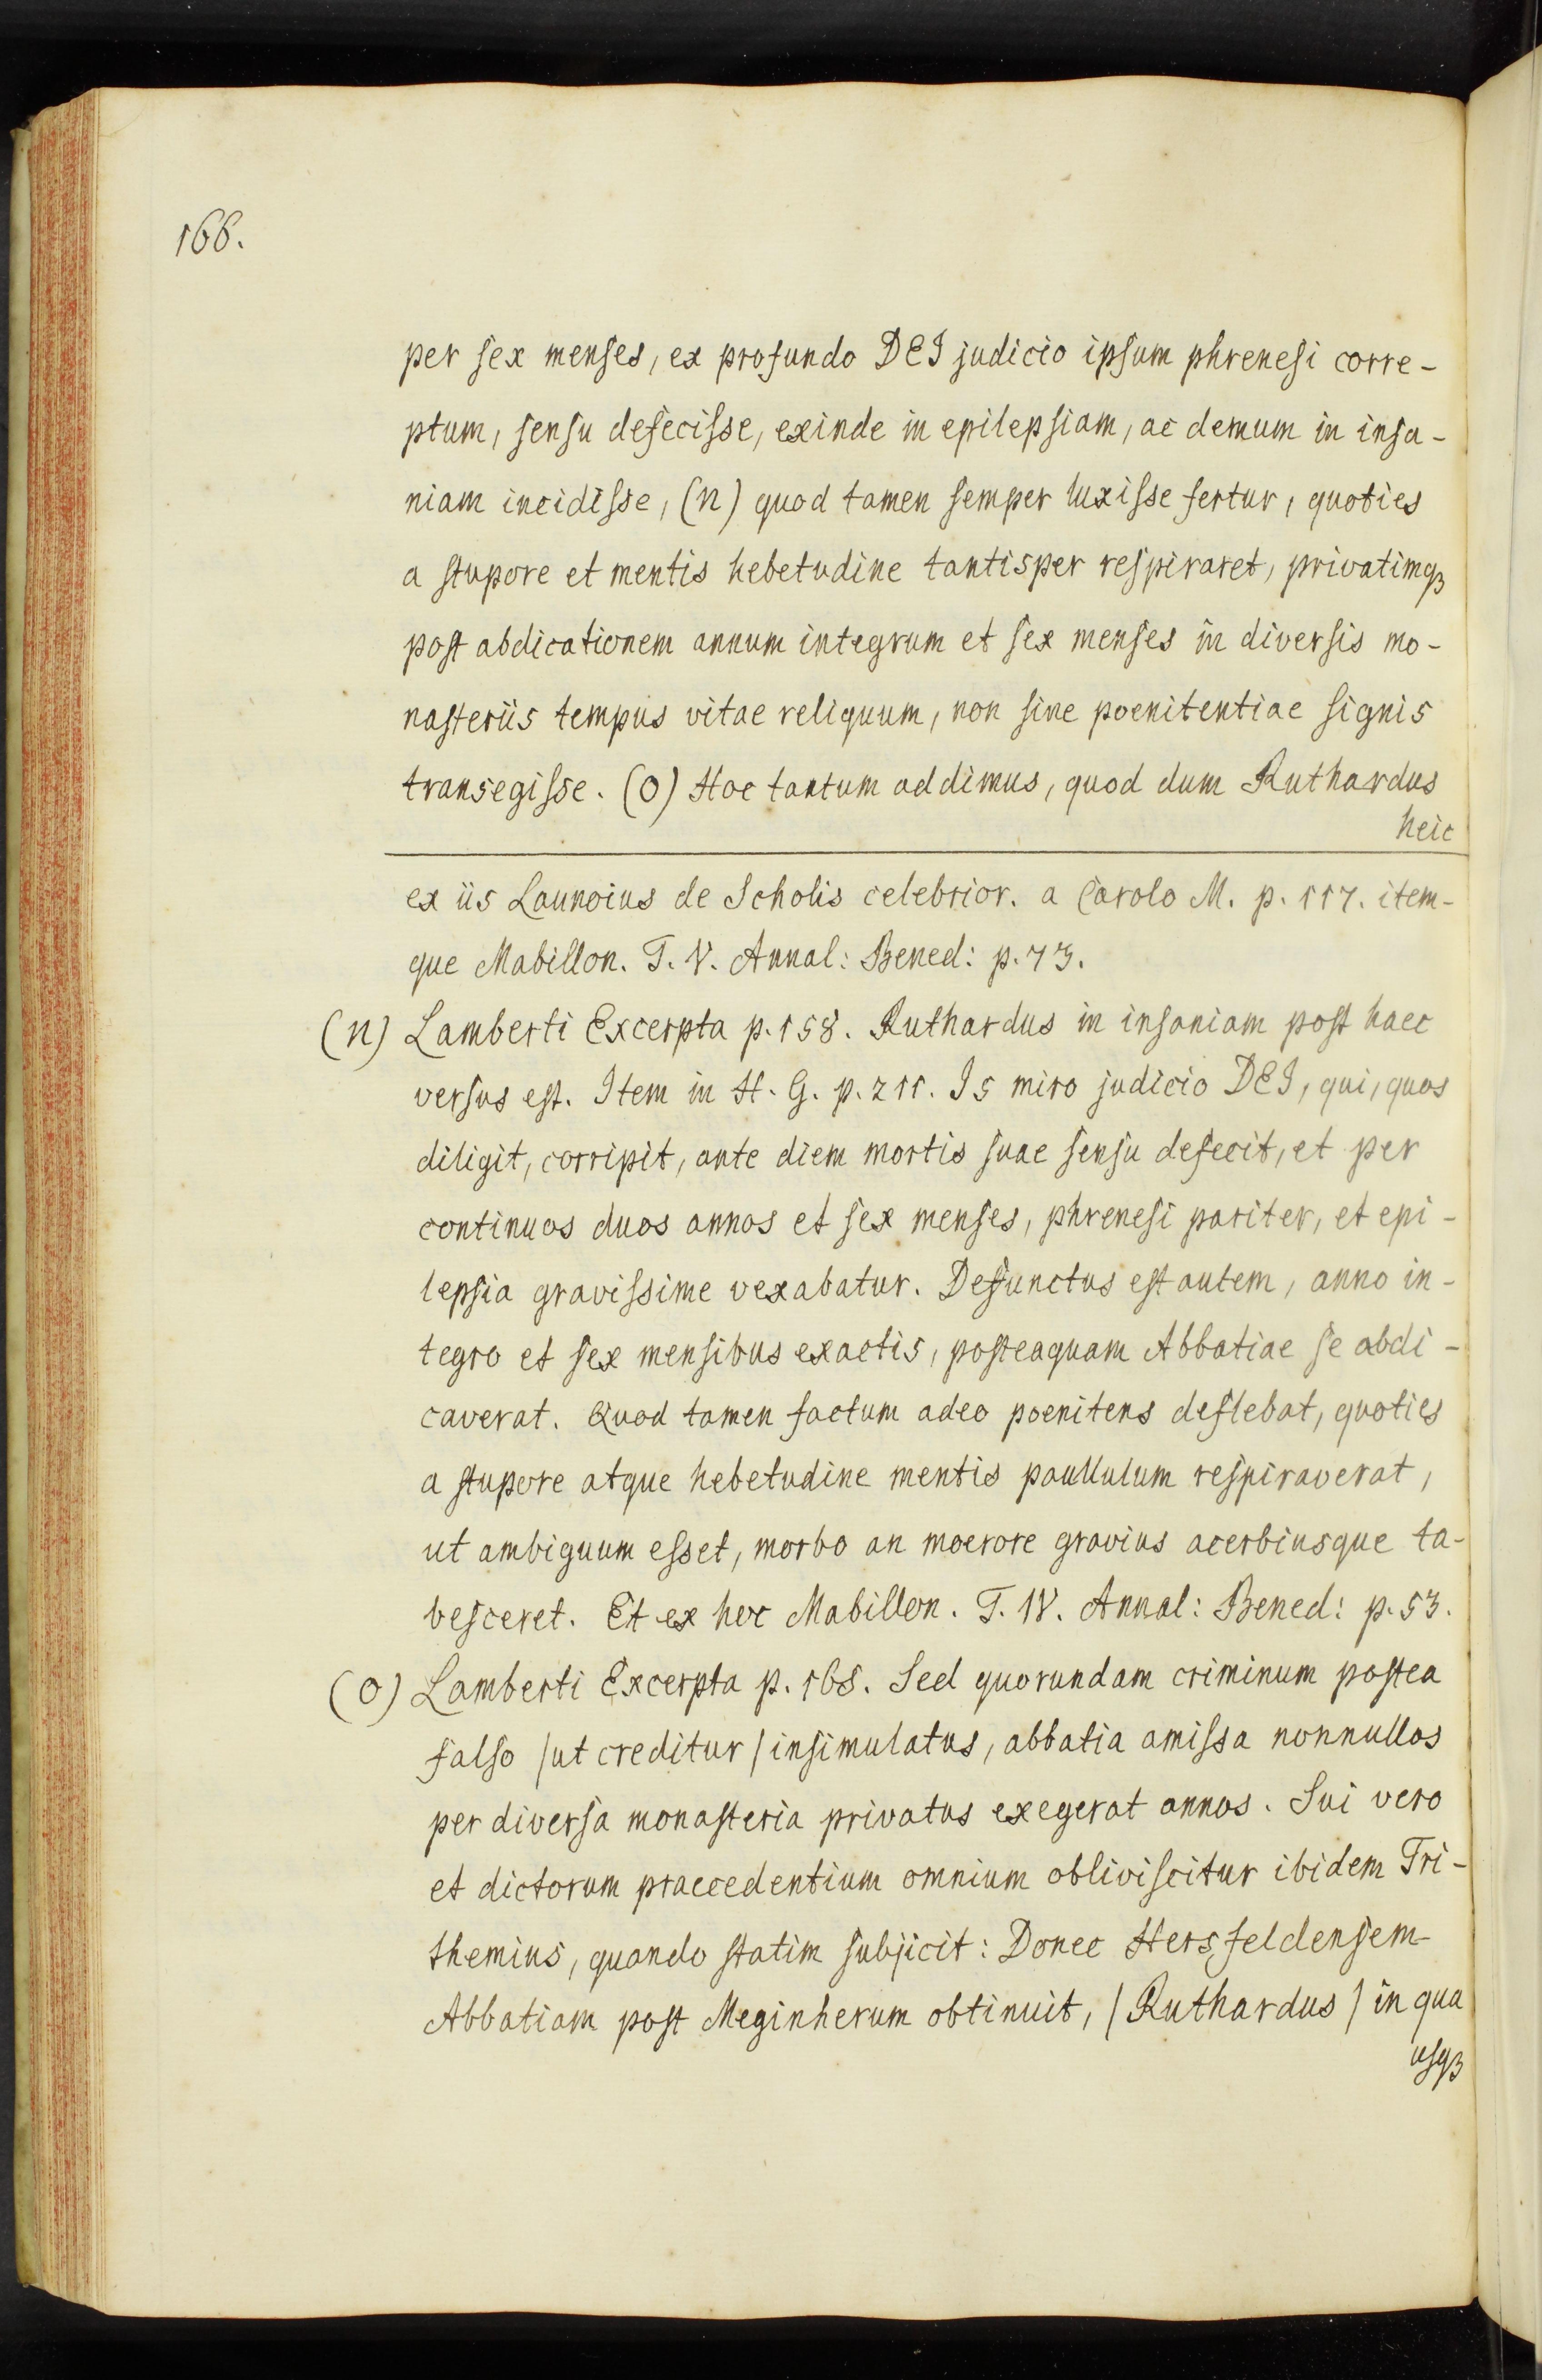 166.
per sex menses, ex profundo DEI judicio ipsum phrenesi corre-
ptum, sensu defecisse, exinde in epilepsiam, ac demum in insa-
niam incidisse, (n) quod tamen semper luxisse fertur, quoties
a stupore et mentis hebetudine tantisper respiraret, privatimqꝫ
post abdicationem annum integrum et sex menses in diversis mo-
nasteriis tempus vitae reliquum, non sine poenitentiae signis
transegisse. (o) Hoc tantum addimus, quod dum Ruthardus
heic
ex iis Launoius de Scholis celebrior. a Carolo M. p. 117. item-
que Mabillon. T. V. Annal: Bened: p. 73.
(n) Lamberti Excerpta p. 158. Ruthardus in insaniam post haec
versus est. Item in H. G. p. 211. Is miro judicio DEI, qui, quos
diligit, corripit, ante diem mortis suae sensu defecit, et per
continuos duos annos et sex menses, phrenesi pariter, et epi-
lepsia gravissime vexabatur. Defunctus est autem, anno in-
tegro et sex mensibus exactis, posteaquam Abbatiae se abdi-
caverat. Quod tamen factum adeo poenitens deflebat, quoties
a stupore atque hebetudine mentis paullulum respiraverat,
ut ambiguum esset, morbo an moerore gravius acerbiusque ta-
besceret. Et ex hoc Mabillon. T. IV. Annal: Bened: p. 53.
(o) Lamberti Excerpta p. 168. Sed quorundam criminum postea
falso /ut creditur/ insimulatus, abbatia amissa nonnullos
per diversa monasteria privatus exegerat annos. Sui vero
et dictorum praecedentium omnium obliviscitur ibidem Tri-
themius, quando statim subjicit: Donec Hersfeldensem
Abbatiam post Meginherum obtinuit, /Ruthardus/ in qua
usqꝫ